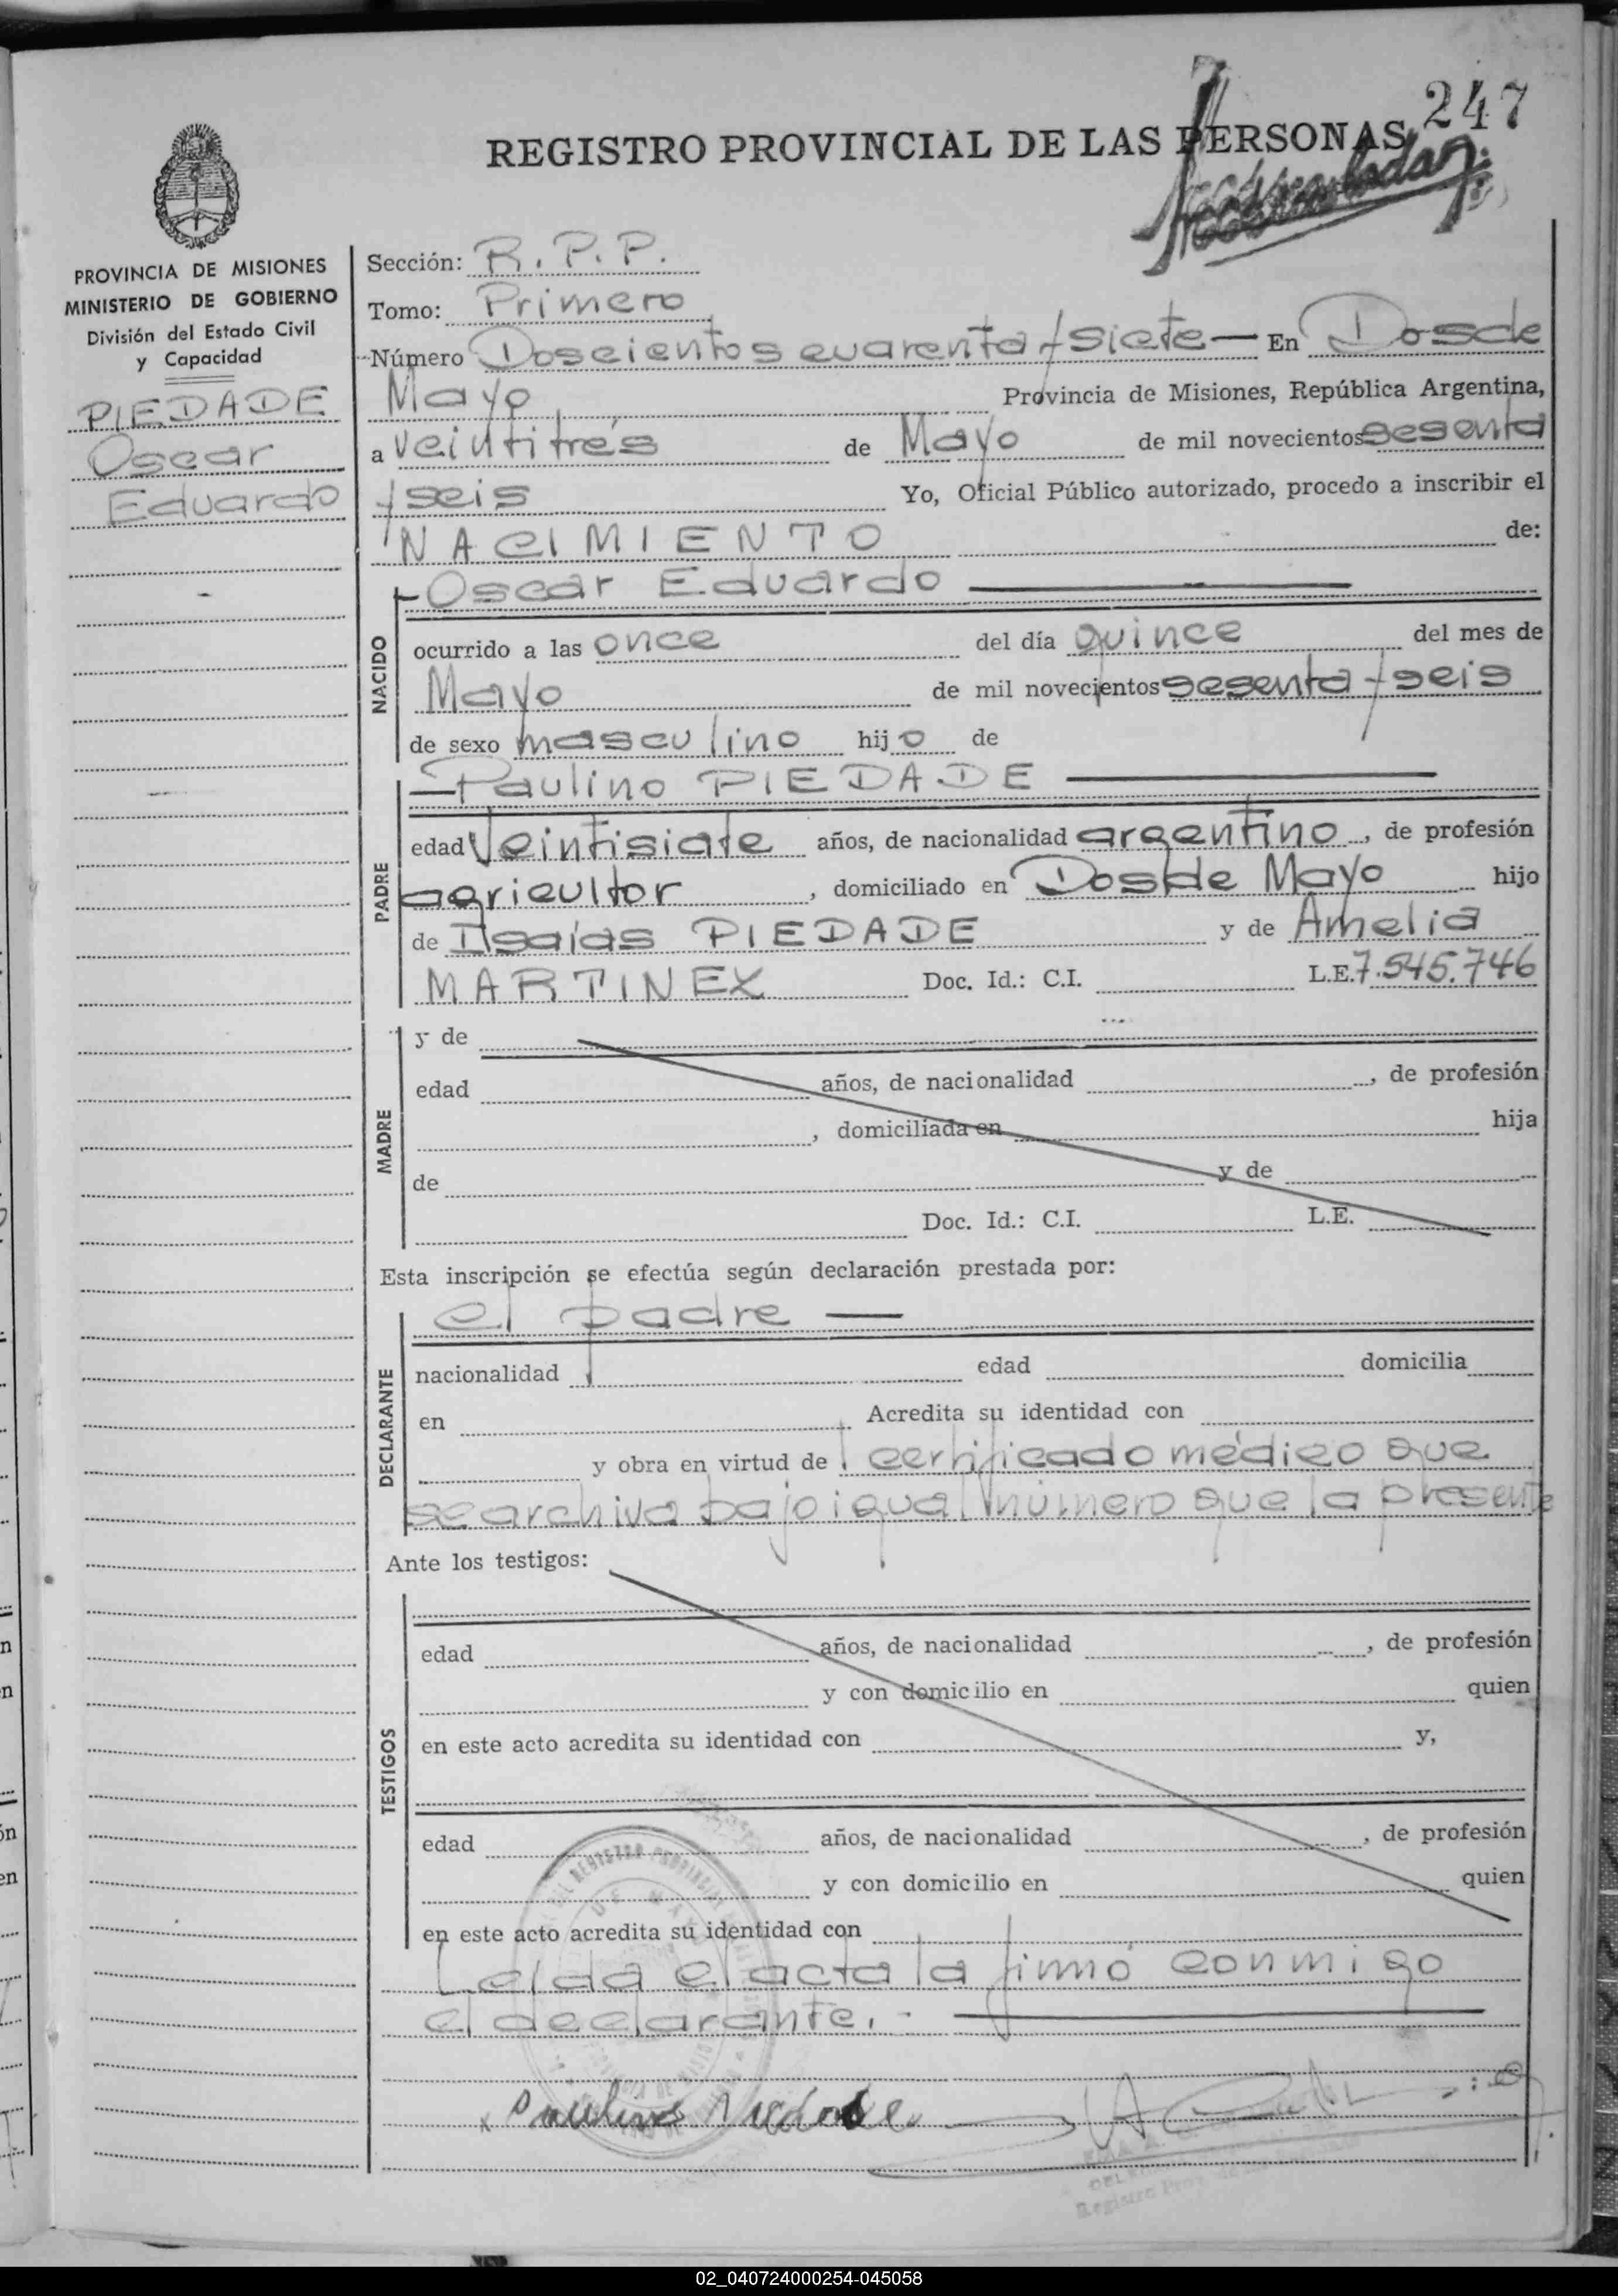 247
REGISTRO PROVINCIAL DE LAS PERSONAS
PROVINCIA DE MISIONES
MINISTERIO DE GOBIERNO
División del Estado Civil
y Capacidad
PIEDADE
Oscar
Eduardo
Sección: R. P. P.
Tomo: Primero
Número Doscientos cuarenta y siete — En Dos de
Mayo Provincia de Misiones, República Argentina,
a veintitrés de Mayo de mil novecientos sesenta
y seis Yo, Oficial Público autorizado, procedo a inscribir el
NACIMIENTO de:
Oscar Eduardo
NACIDO
ocurrido a las once del día quince del mes de
Mayo de mil novecientos sesenta y seis
de sexo masculino hijo de
Paulino PIEDADE
PADRE
edad Veintisiate años, de nacionalidad argentino, de profesión
agricultor, domiciliado en Dos de Mayo hijo
de Isaías PIEDADE y de Amelia
MARTINEX Doc. Id.: C.I. L.E. 7.545.746
MADRE
y de
edad años, de nacionalidad , de profesión
, domiciliada en hija
de y de
Doc. Id.: C.I. L.E.
Esta inscripción se efectúa según declaración prestada por:
el padre —
DECLARANTE
nacionalidad edad domicilia
en Acredita su identidad con
y obra en virtud de certificado médico que
se archiva bajo igual número que la presente
Ante los testigos:
TESTIGOS
edad años, de nacionalidad , de profesión
y con domicilio en quien
en este acto acredita su identidad con y,
edad años, de nacionalidad , de profesión
y con domicilio en quien
en este acto acredita su identidad con
Leída el acta la firmó conmigo
el declarante.
02_040724000254-045058